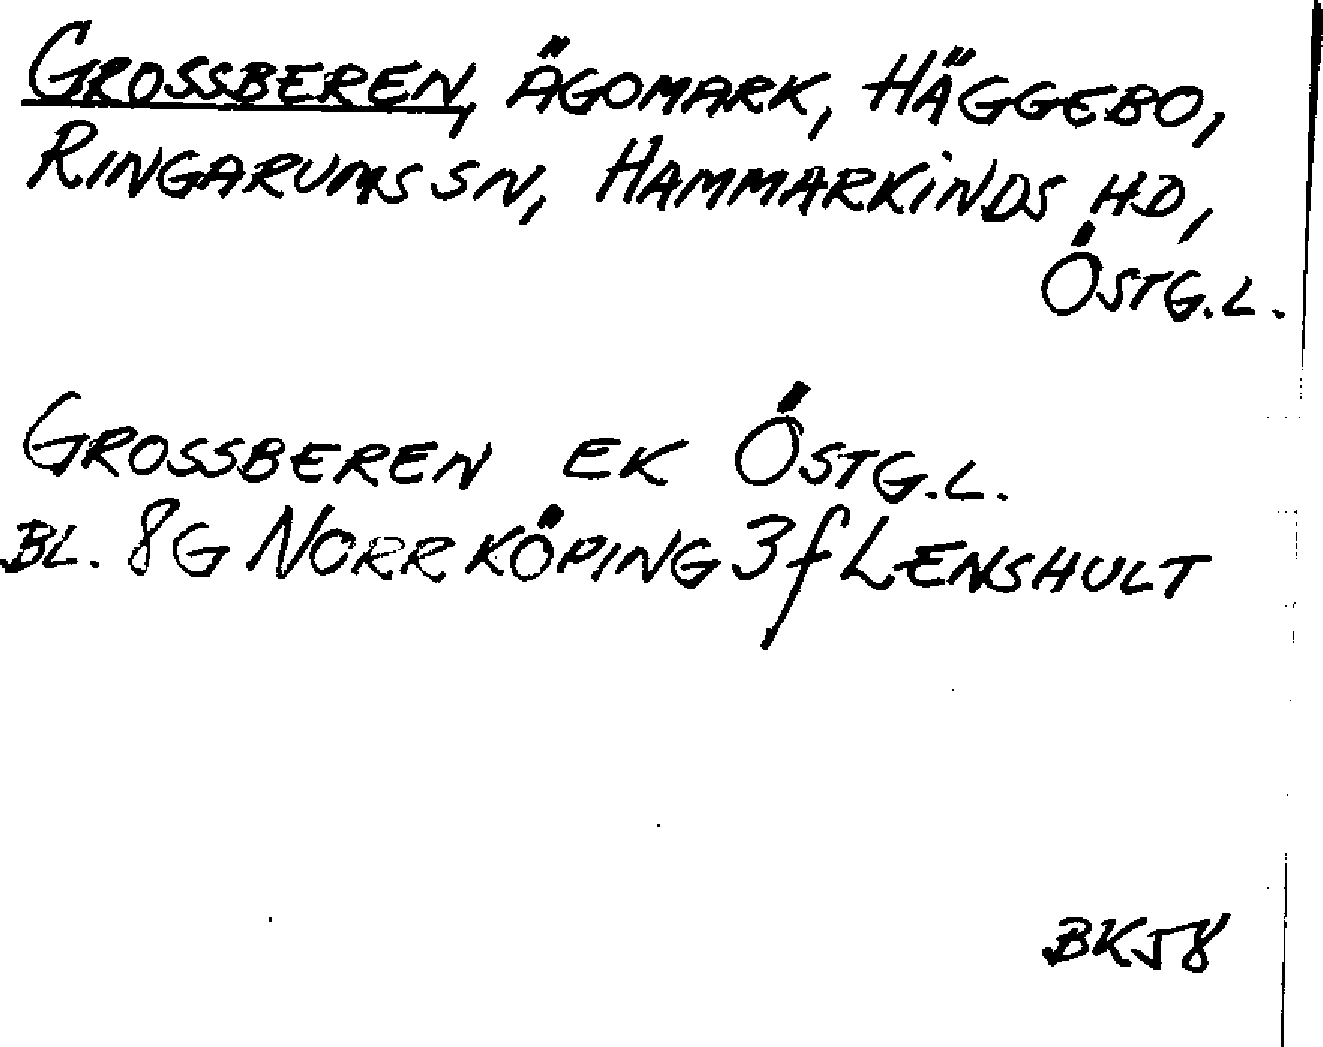 GROSSBEREN, ÄGOMARK, HÄGGEBO,
RINGARUMS SN, HAMMARKINDS HD,
ÖSTG.L.
GROSSBEREN EK ÖSTG.L.
BL. 8G NORRKÖPING 3f LENSHULT
BK58